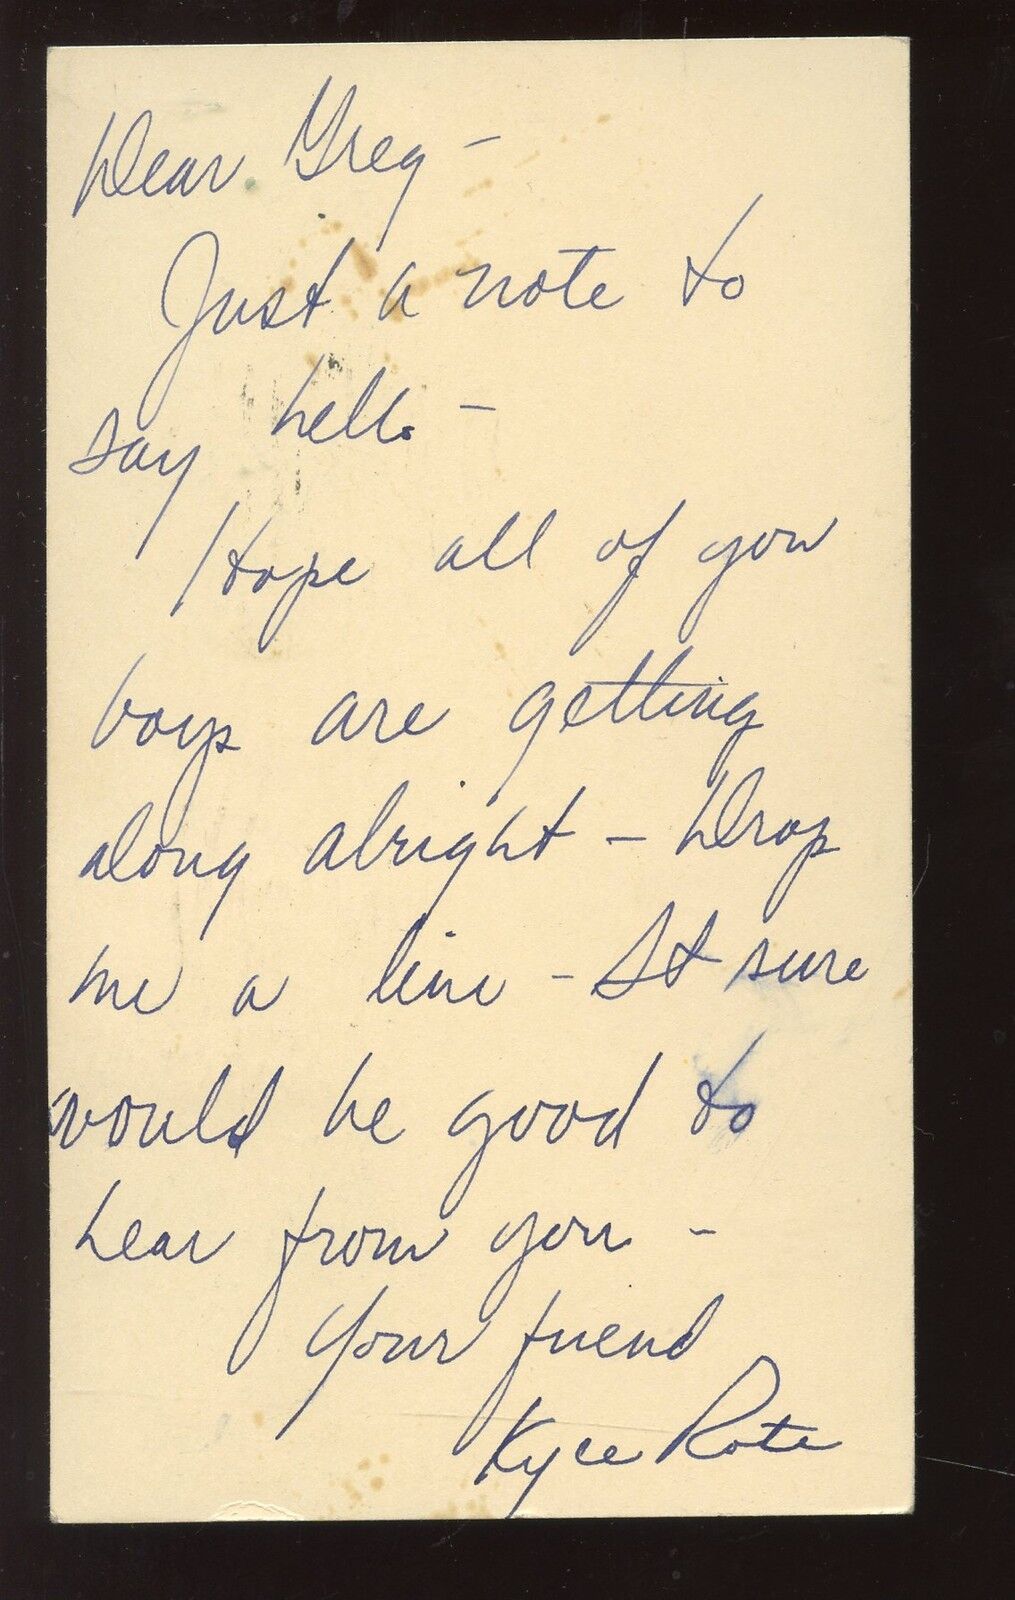 Dear Greg –
Just a note to
say hello –
Hope all of you
boys are getting
along alright – Drop
me a line – It sure
would be good to
hear from you –
Your friend
Kyle Rote